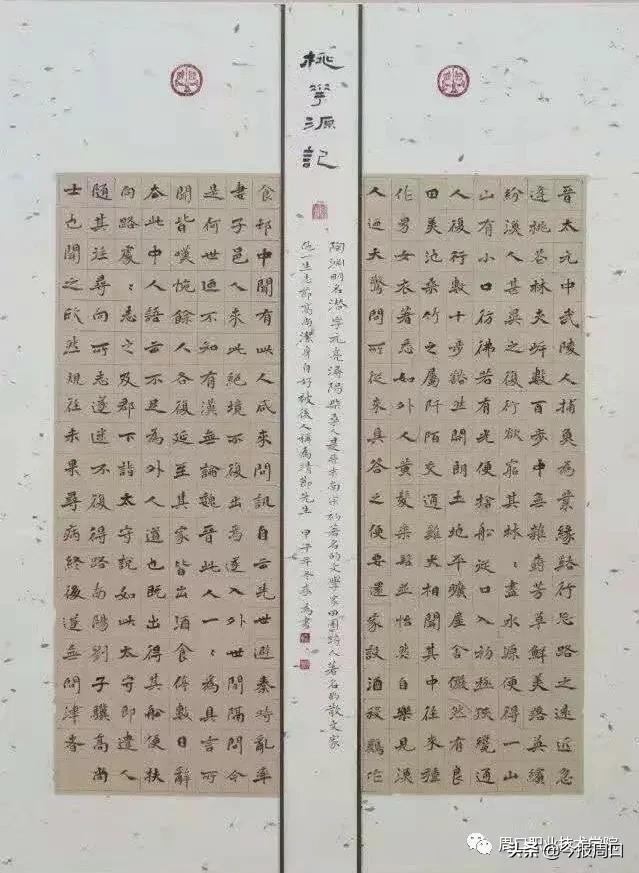 桃花源記
晉太元中武陵人捕魚為業緣谿行忘路之遠近忽
逢桃花林夾岸數百步中無雜樹芳草鮮美落英繽
紛漁人甚異之復行欲窮其林〻盡水源便得一山
山有小口彷彿若有光便捨船從口入初極狹纔通
人復行數十步豁然開朗土地平曠屋舍儼然有良
田美池桑竹之屬阡陌交通雞犬相聞其中往來種
作男女衣著悉如外人黃髮垂髫並怡然自樂見漁
人迺大驚問所從來具答之便要還家設酒殺雞作
陶淵明名潛字元亮潯陽柴桑人是東晉末南宋初著名的文學家田園詩人著名的散文家
他一生志節高尚潔身自好被後人稱為靖節先生 甲午年冬 為書
食邨中聞有此人咸來問訊自云先世避秦時亂率
妻子邑人來此絕境不復出焉遂入外世間隔問今
是何世迺不知有漢無論魏晉此人一〻為具言所
聞皆嘆惋餘人各復延至其家皆出酒食停數日辭
去此中人語云不足為外人道也既出得其船便扶
向路處〻志之及郡下詣太守說如此太守即遣人
隨其往尋向所志遂迷不復得路南陽劉子驥高尚
士也聞之欣然規往未果尋病終後遂無問津者
周口职业技术学院
头条 @今报周口